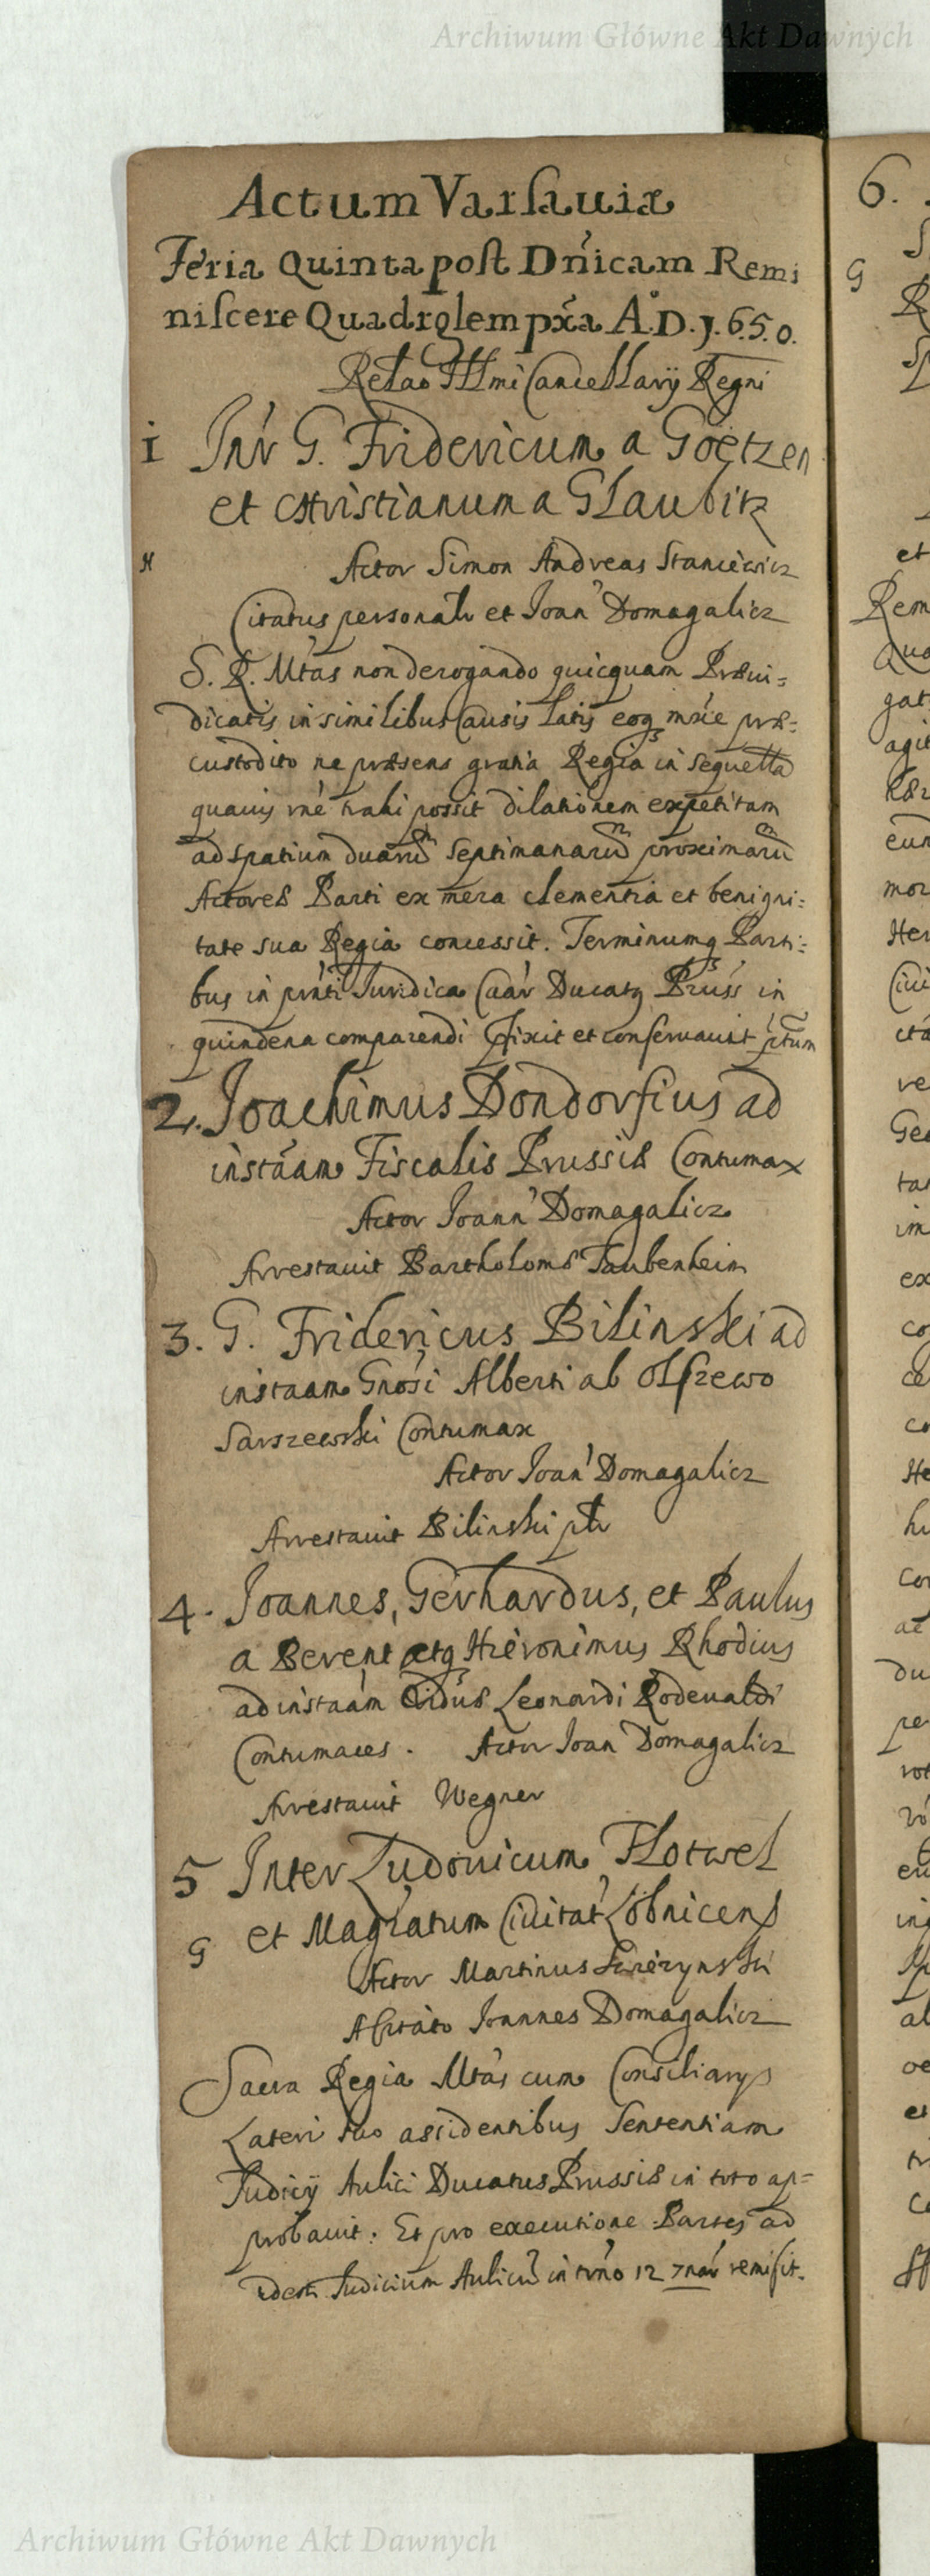 Archiwum Główne Akt Dawnych
Actum Varsauiæ
Feria Quinta post Dn̓icam Remi
niscere Quadrglem pxa A.D. 1.6.5.0.
Relao Illmi Cancellarij Regni
1 Inr̓ G. Fridericum a Goëtzen
et Christianum a Glaubitz
H Actor Simon Andreas Stanciewicz
Citatus personalr et Joan̓ Domagalicz
S. R. Mtas non derogando quicquam Præiu=
dicatis in similibus Causis latis eoq mrie præ=
custodito ne præsens gratia Regia in sequella
quauis trahi possit dilationem expetitam
ad spatium duarū septimanarū proximarū
Actoreæ Parti ex mera clementia et benigni=
tate sua Regia concessit. Terminumq Parti=
bus in prn̓ti Juridica Caār Ducatq Pruss in
quindena comparendi fixit et conseruauit
2. Joachimus Dondorfius ad
instāam Fiscalis Prussiæ Contumax
Actor Joann̓ Domagalicz
Arrestauit Bartholomæ Taubenheim
3. G. Fridericus Bilinski ad
instaam Gnosi Alberti ab Olszewo
Sarszewski Contumax
Actor Joan̓ Domagalicz
Arrestauit Bilinski plr
4. Joannes, Gerhardus, et Paulus
a Berent atq Hieronimus Rhodius
ad instaam Leonardi Rodeualdi
Contumaces. Actor Joan Domagalicz
Arrestauit Wegner
5 Inter Ludouicum Flotwel
G et Magratum Ciuitat̓ Löbnicens
Actor Martinus
Joannes Domagalicz
Sacra Regia Mtas cum Consiliarys
Lateri suo assidentibus Sententiam
Judicij Aulici Ducatus Prussiæ in toto ap=
probauit. Et pro executione Partes ad
idem Judicium Aulicū in trn̓o 12 7nar̓ remisit.
6.
G
et
Rem
Archiwum Główne Akt Dawnych